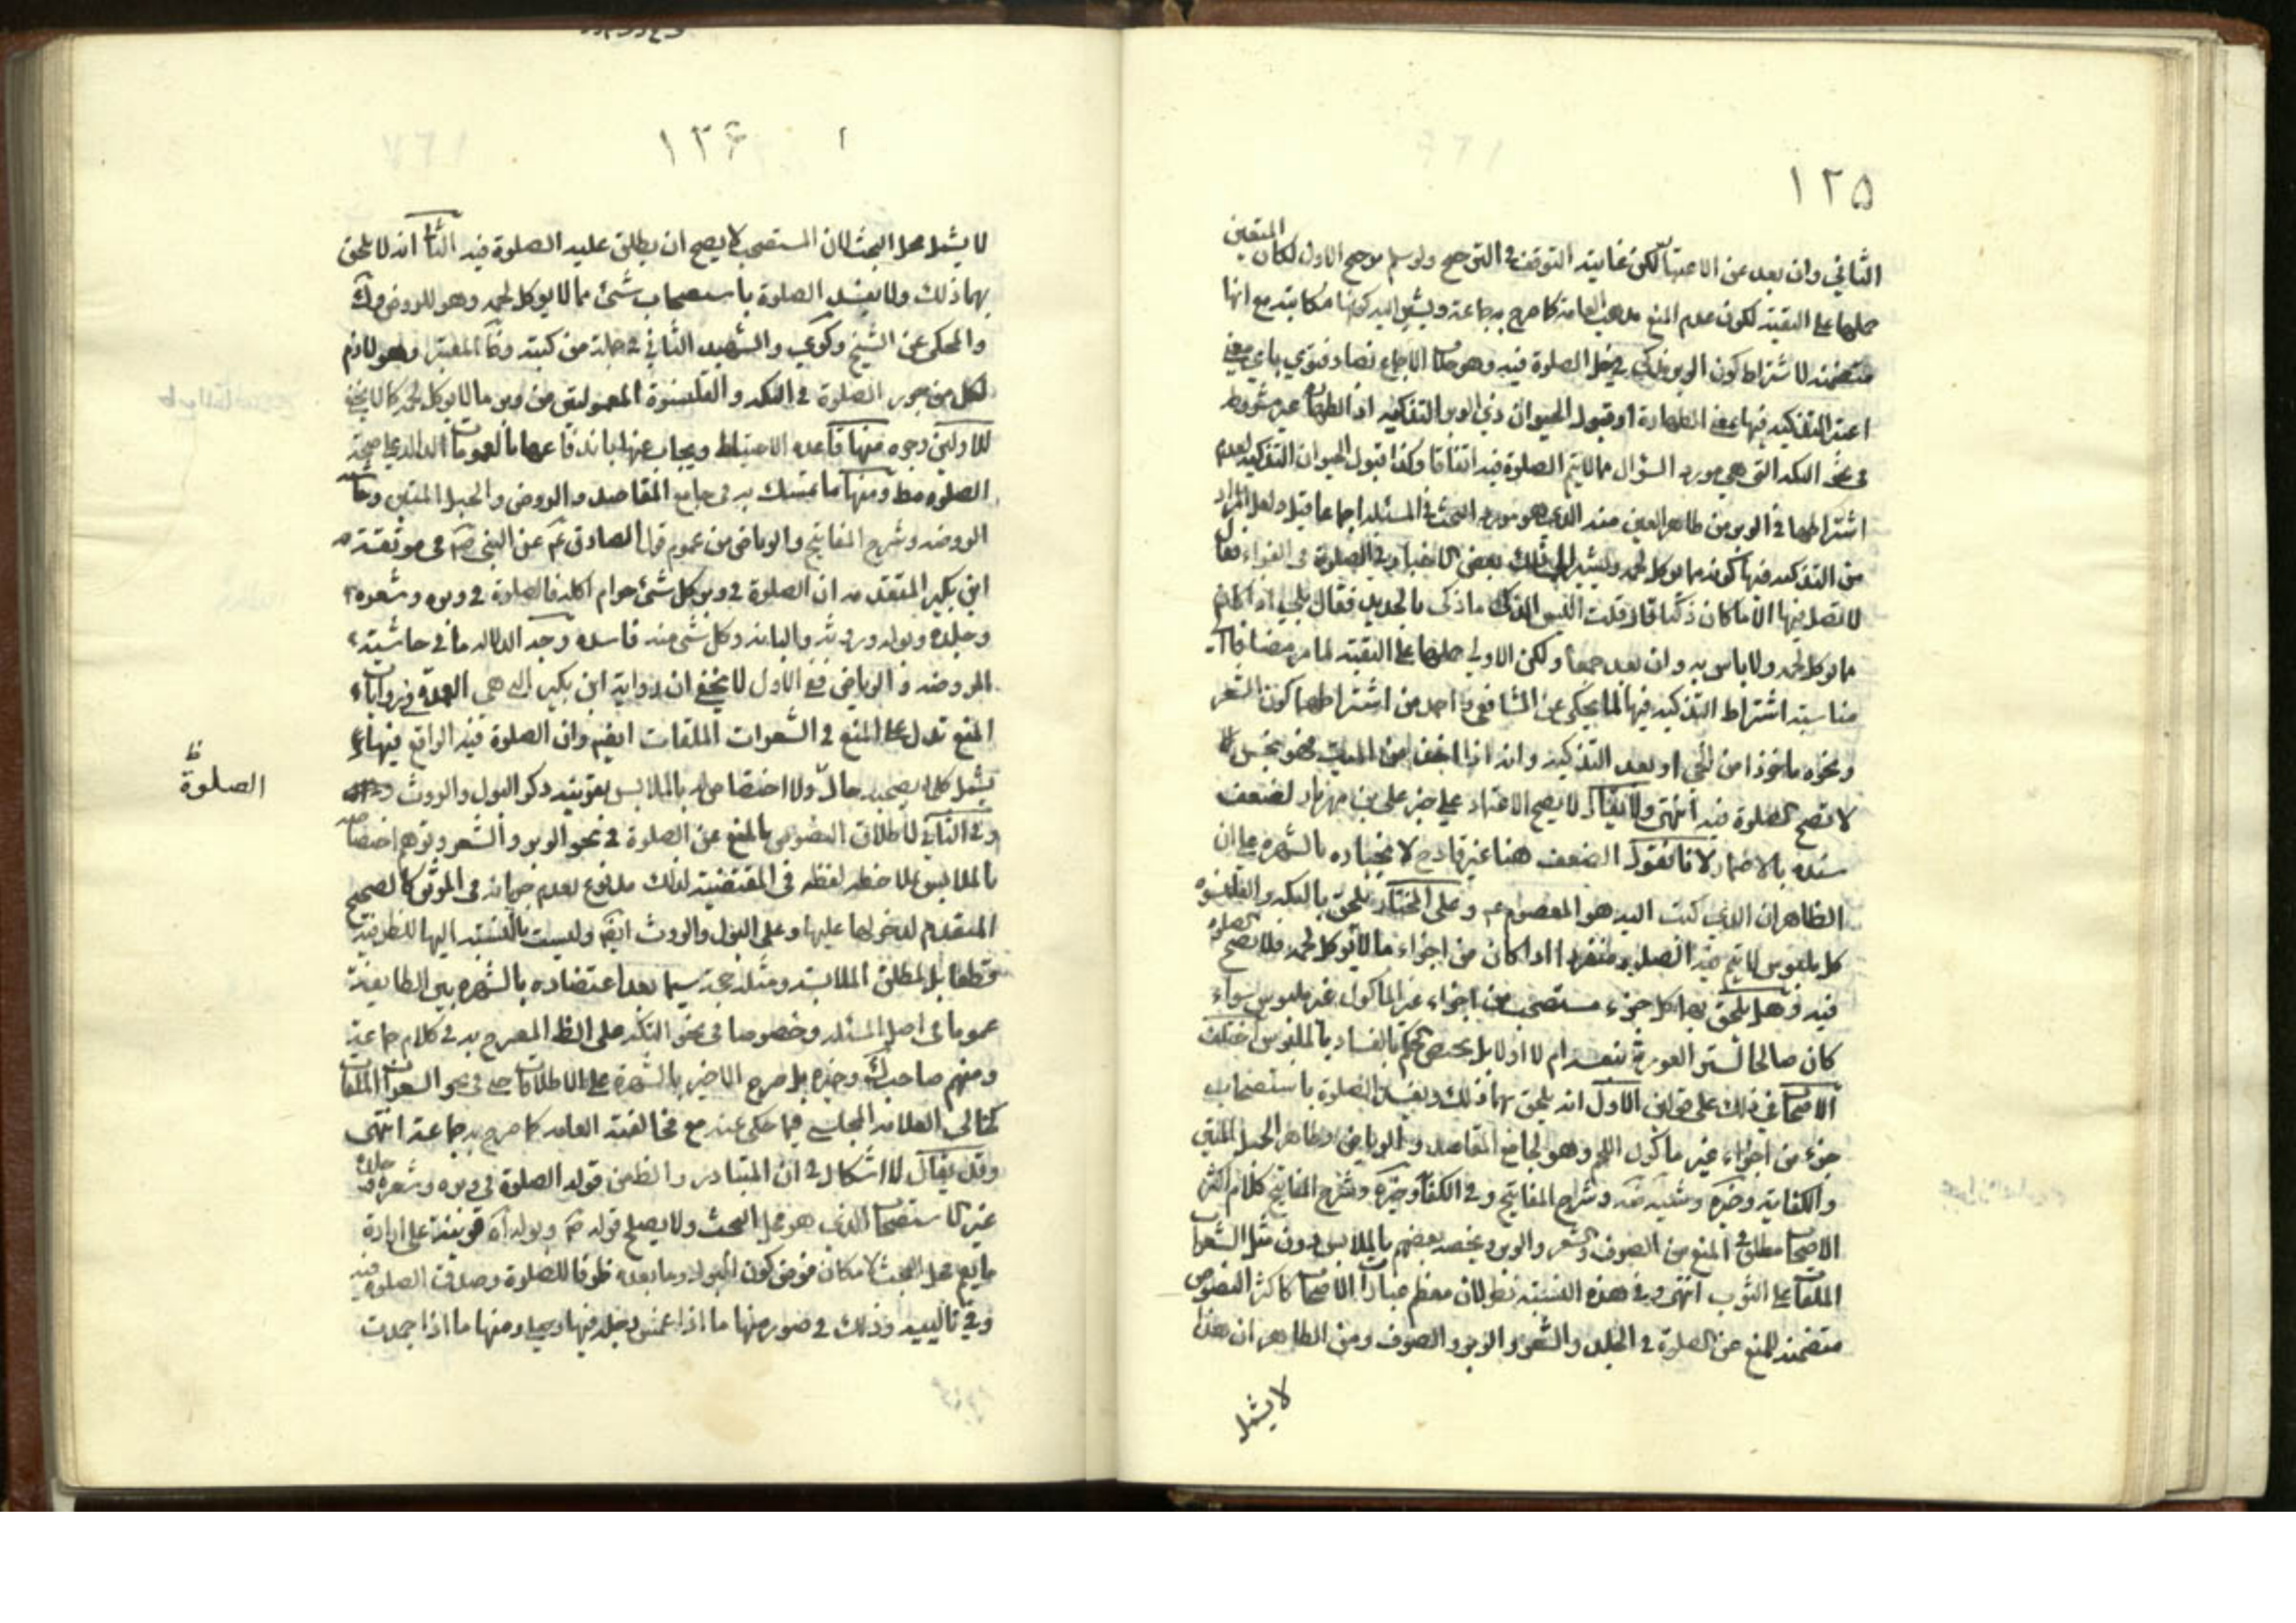 ١٢٥
المتعين
الثاني وان بعد عن الاعتبار لكن غايته التوقف في الترجيح ولو سلم مرجح الاول لكان
حملها على التقية لكون عدم المنع مذهب العامة كما صرح به جماعة ويشير اليه كونها مكاتبة مع انها
متضمنة لاشتراط كون الوبر في محل الصلوة فيه وهو خلاف الاجماع نصا وفتوى باي معنى
اعتبر التذكيه فيها بمعنى الطهارة او قبول الحيوان ذي الوبر التذكيه اذ الطهارة غير مشروط
في نحو التكه التي هي مورد السؤال مما لا يتم الصلوة فيه اتفاقا وكذا قبول الحيوان التذكيه لعدم
اشتراطها في الوبر من طاهر العين منه الذي هو مورد البحث في المسئلة اجماعا قيل ولعل المراد
من التذكيه فيها كونه مما يوكل لحمه ويشير الى ذلك بعض الاخبار وفيه الصلوة في الفراء فقال
لا تصل فيها الا ما كان ذكيا قال قلت اليس الذكى ما ذكى بالحديد فقال بلى اذا كان
مما يوكل لحمه ولا باس به وان بعد جمعا ولكن الاولى حملها على التقية لما مر مضافا الى
مناسبة اشتراط التذكيه فيها لما يحكى عن الشافعي واحمد من اشتراطهما كون الشعر
ونحوه ماخوذا من الحي او بعد التذكيه وانه اذا اخذ من الميت فهو نجس لا
لا تصح الصلوة فيه انتهى ولا يقال لا يصح الاعتماد على خبر علي بن مهزيار لضعف
سنده بالاضمار لانا نقول الضعف هنا غير قادح لانجباره بالشهرة على ان
الظاهر ان الذي كتب اليه هو المعصوم ع وعلى المختار يلحق بالتكه والقلنسوه
كل ملبوس لا يتم فيه الصلوة منفردا اذا كان من اجزاء ما لا يوكل لحمه فلا تصح الصلوة
فيه وهل يلحق بها كل جزء مستصحب من اجزاء غير الماكول غير ملبوس سواء
كان صالحا لستر العورة بنفسه ام لا او لا بل يختص الحكم بالفساد بالملبوس اختلف
الاصحاب في ذلك على قولين الاول انه يلحق بها ذلك ويفسد الصلوة باستصحاب
جزء من اجزاء غير ماكول اللحم وهو لجامع المقاصد والرياض وظاهر الحبل المتين
والكفاية وشرح المفاتيح وفي الكفاية وشرح المفاتيح كلام اكثر
الاصحاب مطلق في المنع من الصوف والشعر والوبر ويخصه بعضهم بالملابس دون مثل الشعرات
الملقات على الثوب انتهى وفي هذه النسبة نظر لان معظم عبارات الاصحاب كاكثر النصوص
متضمنة للمنع عن الصلوة في الجلد والشعر والوبر والصوف ومن الظاهر ان هذا
لا يشمل
١٢۶
لا يشمل محل البحث لان المستصحب لا يصح ان يطلق عليه الصلوة فيه الثاني انه لا يلحق
بها ذلك ولا يفسد الصلوة باستصحاب شئ مما لا يوكل لحمه وهو للروض وك
والمحكى عن الشيخ وكرى والشهيد الثاني في جملة من كتبه وفاقا للمعتبر وهو لازم
لكل من جوز الصلوة في التكه والقلنسوة المعمولتين من وبر ما لا يوكل لحمه كما لا يخفى
للاولين وجوه منها قاعدة الاحتياط ويجاب عنها باندفاعها بالعمومات الدالة على صحة
الصلوة مط ومنها ما تمسك به في جامع المقاصد والروض والحبل المتين وحاشيه
الروضه وشرح المفاتيح والرياض من عموم قول الصادق ع عن النبي ص في موثقة
ابن بكير المتقدمه ان الصلوة في وبر كل شئ حرام اكله فالصلوة في وبره وشعره
وجلده وبوله وروثه والبانه وكل شئ منه فاسده وجه الدلالة ما في حاشية
الروضه والرياض ففي الاول لا يخفى ان رواية ابن بكير التي هي العمدة في روايات
المنع تدل على المنع في الشعرات الملقات ايضا وان الصلوة فيه الواقع فيها
يشمل كلما يصحبه حالة ولا اختصاص له بالملابس بقرينة ذكر البول والروث
الصلوة ظ
وفي الثاني لاطلاق النصوص بالمنع عن الصلوة في نحو الوبر والشعر وتوهم اختصاصه
بالملابس بملاحظه لفظه في المقتضية لذلك مدفوع لعدم جريانه في الموثق كالصحيح
المتقدم لدخولها عليها وعلى البول والروث ايضا وليست بالنسبة اليها للظرفية
قطعا بل لمطلق الملابسة ومثله حجة سيما بعد اعتضاده بالشهرة بين الطايفة
عموما في اصل المسئلة وخصوصا في نحو التكه على الظ المصرح به في كلام جماعة
ومنهم صاحب ك وخيره بل صرح الاخير بالشهرة على الاطلاق حتى في نحو الشعرات الملقات
كخالي العلامه المجلسى فيما حكى عنه مع مخالفته العامة كما صرح به جماعة انتهى
وقد يقال لا اشكال في ان المتبادر والظ من قوله الصلوة في وبره وشعره وجلده
غير الاستصحاب الذي هو محل البحث ولا يصلح قوله ص وبوله اه قرينة على ارادة
ما يعم محل البحث لامكان فرض كون البول وما بعده ظرفا للصلوة وصدق الصلوة فيه
وفي تاليه وذلك في صور منها ما اذا غمس رجله فيها وصلى ومنها ما اذا جمدت